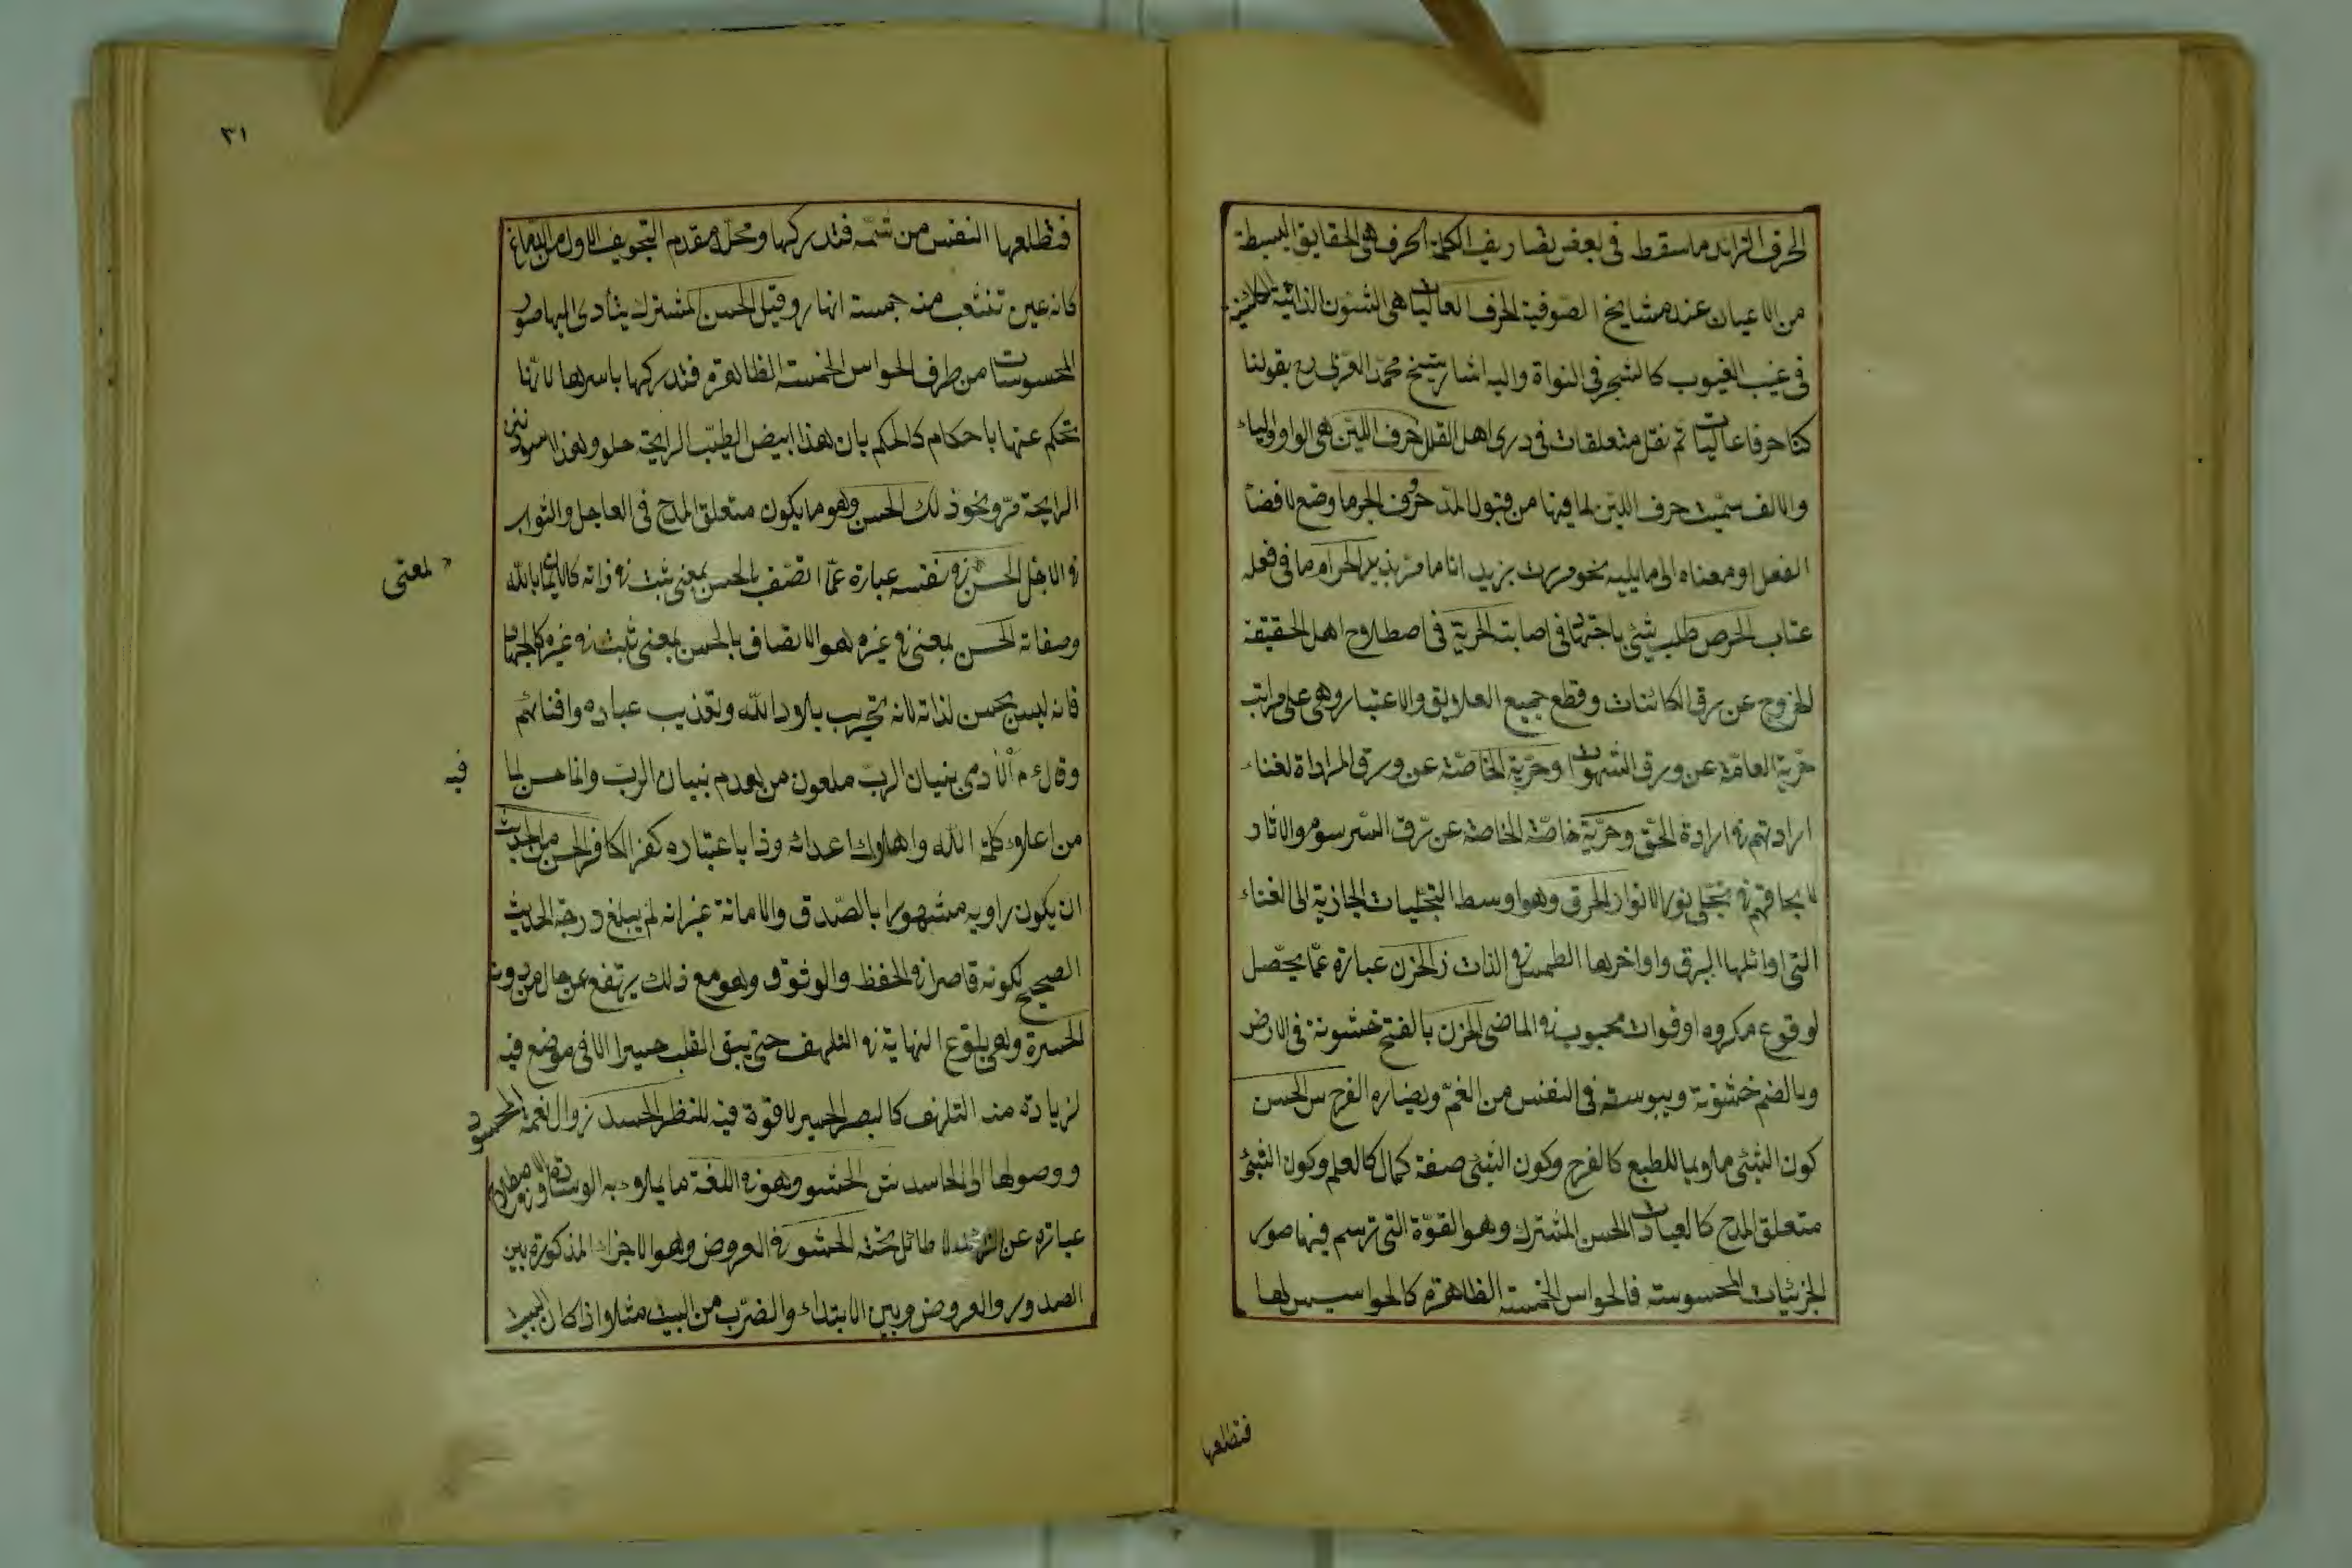 الحرف الزائد ما سقط فى بعض تصاريف الكلمة الحرف هى الحقايق البسيطة
من الاعيان عند مشايخ الصوفية الحرف العاليات هى الشئون الذاتية الكائنة
فى غيب الغيوب كالشجر فى النواة واليه اشار شيخ محمد العربى رح بقولنا
كنا حرفا عاليات لم نقل متعلقات فى ذرى اهل القلل حرف اللين هى الواو والياء
والالف سميت حرف اللين لما فيها من قبول المد حروف الجر ما وضع لافضاء
الفعل او معناه الى ما يليه نحو مررت بزيد انا مار بزيد الحرام ما فى فعله
عتاب الحرص طلب شئ باجتهاد فى اصابته الحرية فى اصطلاح اهل الحقيقة
الخروج عن رق الكائنات وقطع جميع العلايق والاعتبار وهى على مراتب
حرية العامة عن ورق الشهوات وحرية الخاصة عن ورق المرادة لفناء
ارادتهم فى ارادة الحق وحرية خاصة الخاصة عن رق السرسوم والاثار
لانحاقهم فى تجلى نور الانوار الحرق وهو اوسط التجليات الجاذبة الى الفناء
التى اوائلها البرق واواخرها الطمس فى الذات ز الحزن عبارة عما يحصل
لوقوع مكروه او فوات محبوب فى الماضى الحزن بالفتح خشونة فى الارض
وبالضم خشونة ويبوسة فى النفس من الغم ويضاره الفرح س الحسن
كون الشئ ملايما للطبع كالفرح وكون الشئ صفة كمال كالعلم وكون الشئ
متعلق المدح كالعبادات الحس المشترك وهو القوة التى ترسم فيها صور
الجزئيات المحسوسة فالحواس الخمسة الظاهرة كالحواسيس لها
فتطلعها
٣١
فتطلعها النفس من ثمه فتدركها ومحله مقدم التجويف الاول من الدماغ
كانه عين تنشعب منه خمسة انهار وقيل الحس المشترك يتأدى اليها صور
المحسوسات من طرف الحواس الخمسة الظاهرة فتدركها باسرها لانا
نحكم عنها باحكام كالحكم بان هذا ابيض الطيب الرايحة حلو وهذا اسود نتن
الرايحة مر ونحو ذلك الحسن وهو ما يكون متعلق المدح فى العاجل والثواب
فى الاجل الحسن فى نفسه عبارة عما اتصف بالحسن بمعنى ثبت فى ذاته كالايمان بالله
لمعنى
وصفاته الحسن بمعنى فى غيره هو الاتصاف بالحسن بمعنى ثبت فى غيره كالجهاد
فانه ليس بحسن لذاته لانه تخريب بلاد الله وتعذيب عباده وافنائهم
وقال ع م الادمى بنيان الرب ملعون من هدم بنيان الرب وانما حسن لما
فيه
من اعلاء كلمة الله واهلاك اعدائه وذا باعتباره كفر الكافر الحسن من الحديث
ان يكون راويه مشهورا بالصدق والامانة غير انه لم يبلغ درجة الحديث
الصحيح لكونه قاصرا فى الحفظ والوثوق وهو مع ذلك يرتفع عن حال من دونه
الحسرة وهى بلوغ النهاية فى التلهف حتى يبقى القلب حسيرا لا فى موضع فيه
لزيادة منه التلهف كالبصر الحسير لا قوة فيه للنظر الحسد زوال نعمة المحسود
ووصولها الى الحاسد ش الحشو وهو فى اللغة ما يملاء به الوسادة
عبارة عن لا طائل تحته الحشو فى العروض وهو الاجزاء المذكورة بين
الصدور والعروض وبين الابتداء والضرب من البيت مثلا واذا كان البيت